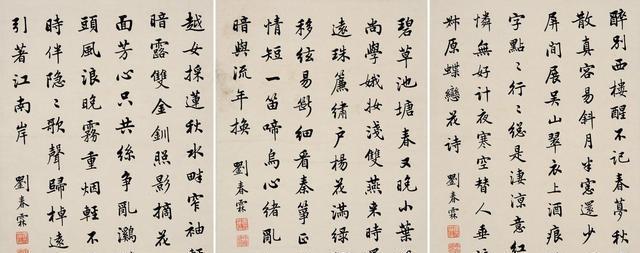 醉別西樓醒不記春夢秋
散真容易斜月半窗還少
屏間展吳山翠衣上酒痕
字點〻行〻總是淒涼意紅
憐無好計夜寒空替人垂
叔原蝶戀花詩 劉春霖
碧草池塘春又晚小葉
尚學娥妝淺雙燕來時
遠珠簾繡戶楊花滿綠
移絃易斷細看秦箏正
情短一笛啼烏心緒亂
暗與流年換 劉春霖
越女採蓮秋水畔窄袖輕
暗露雙金釧照影摘花
面芳心只共絲爭亂鸂
頭風浪晚霧重烟輕不
時伴隱〻歌聲歸棹遠
引著江南岸 劉春霖